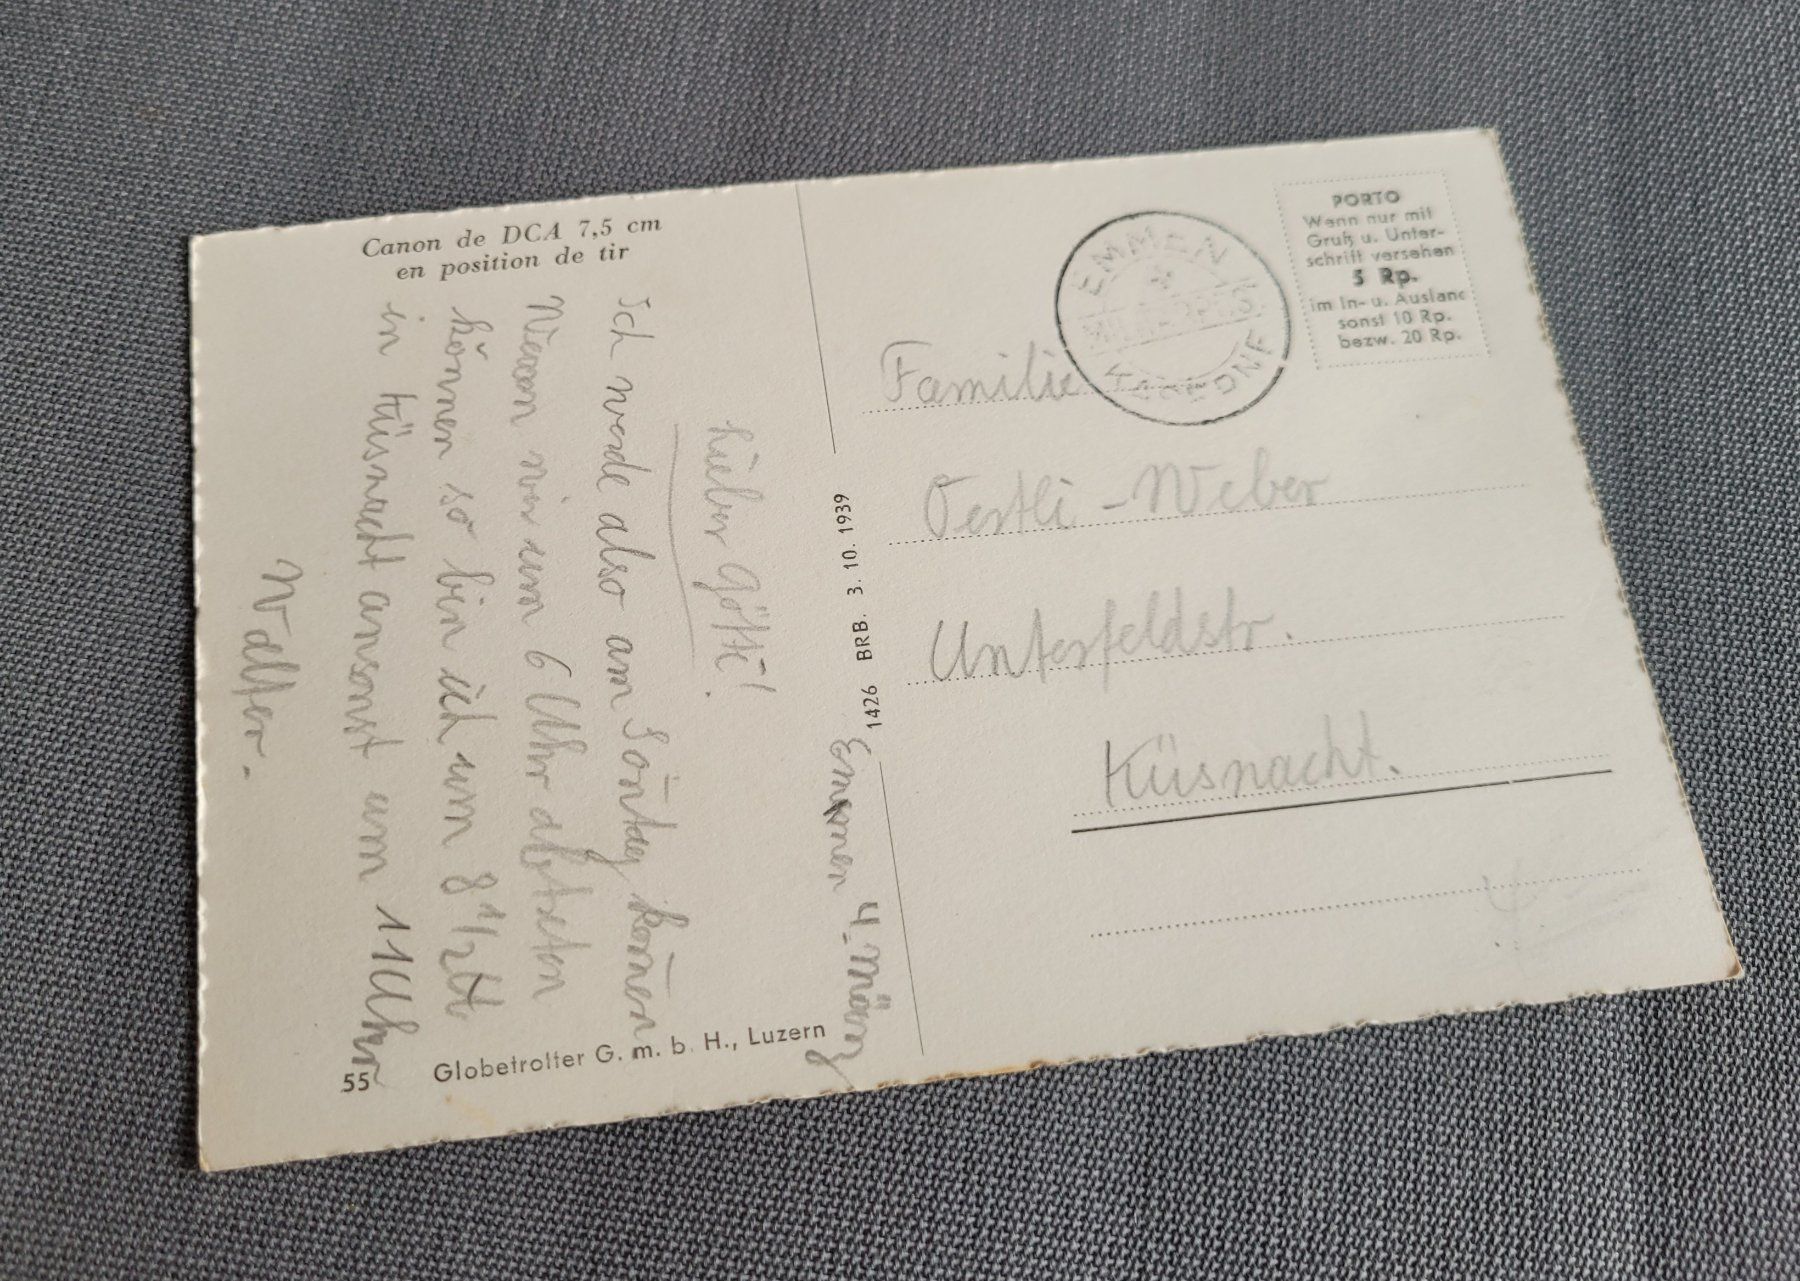 Canon de DCA 7,5 cm
en position de tir
Emmen 4. März
Lieber Götti!
Ich werde also am Sontag komen
Wenn wir um 6 Uhr abtreten
können so bin ich um 8 1/2
in Küsnacht ansonst um 11Uhr
Walter.
55
Globetrotter G. m. b. H., Luzern
1426 BRB. 3. 10. 1939
EMMEN
KASERNE
PORTO
Wenn nur mit
Gruß u. Unter-
schrift versehen
5 Rp.
im In- u. Ausland
sonst 10 Rp.
bezw. 20 Rp.
Familie
Oertli - Weber
Unterfeldstr.
Küsnacht.